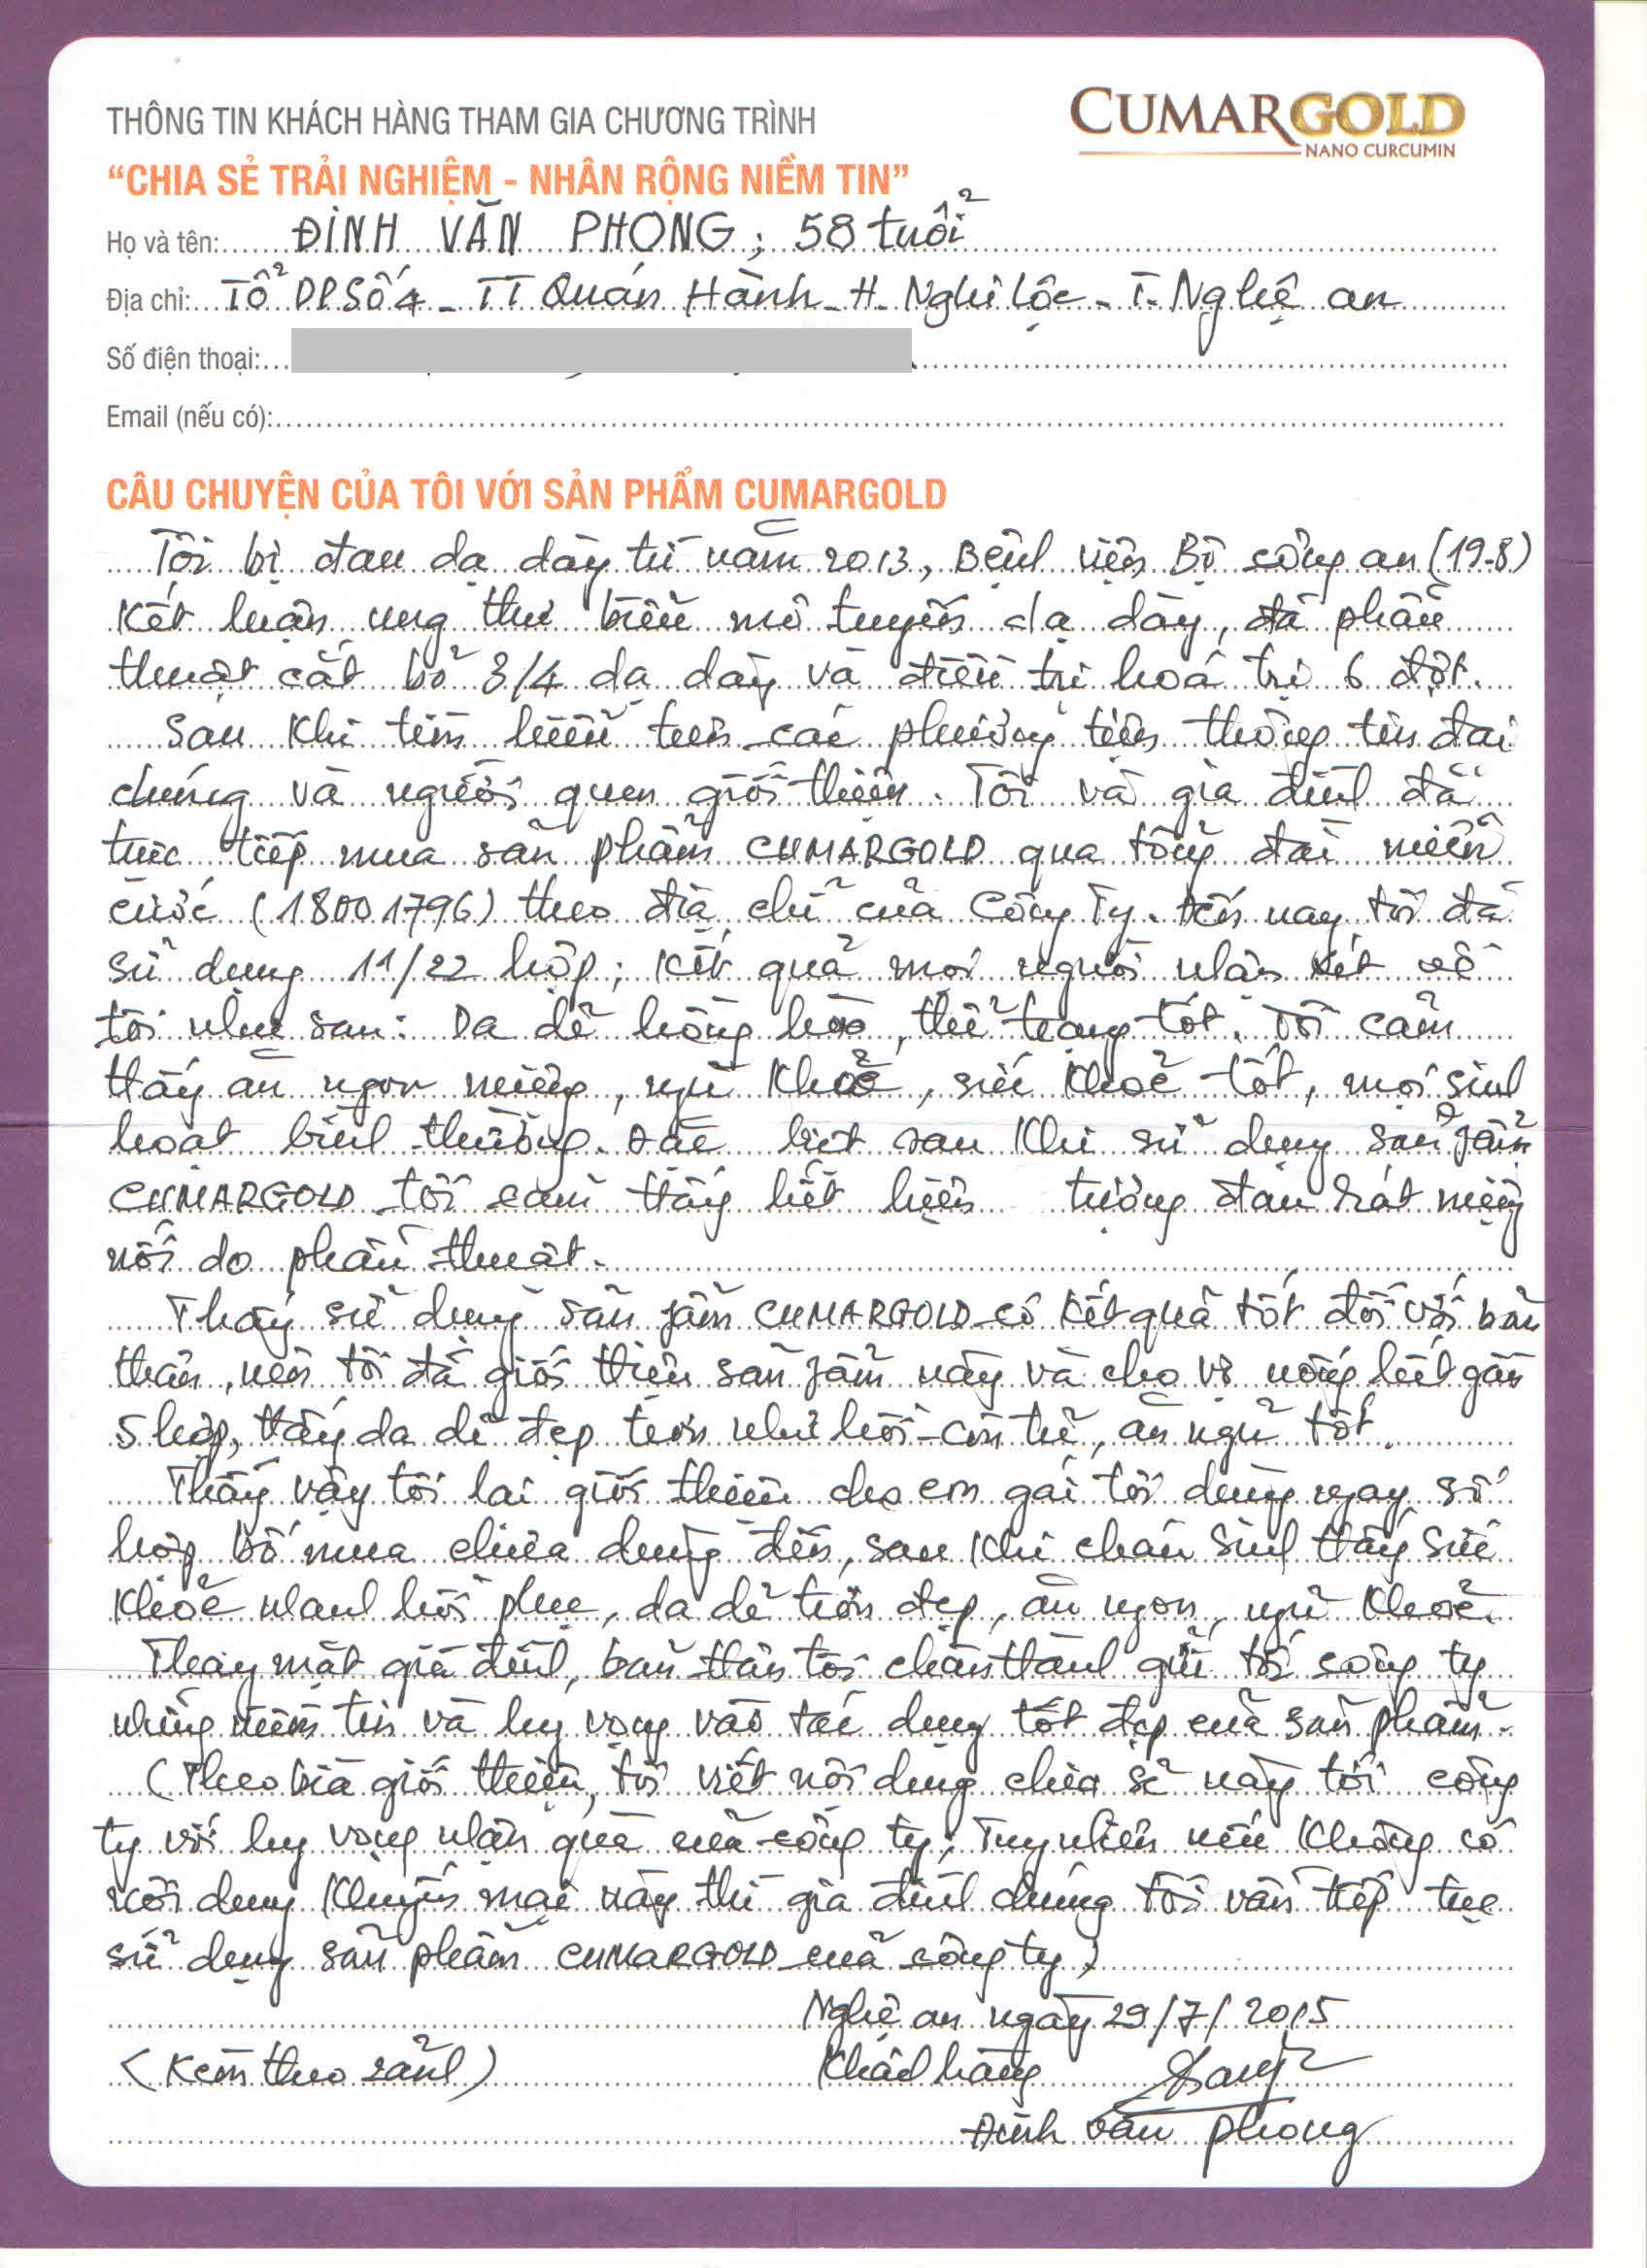 THÔNG TIN KHÁCH HÀNG THAM GIA CHƯƠNG TRÌNH
CUMARGOLD
NANO CURCUMIN
"CHIA SẺ TRẢI NGHIỆM - NHÂN RỘNG NIỀM TIN"
Họ và tên: ĐINH VĂN PHONG; 58 tuổi
Địa chỉ: Tổ DP Số 4 - TT Quán Hành - H. Nghi Lộc - T. Nghệ an
Số điện thoại:
Email (nếu có):
CÂU CHUYỆN CỦA TÔI VỚI SẢN PHẨM CUMARGOLD
Tôi bị đau dạ dày từ năm 2013, Bệnh viện Bộ công an (19-8)
Kết luận ung thư biểu mô tuyến dạ dày, đã phẫu
thuật cắt bỏ 3/4 dạ dày và điều trị hoá trị 6 đợt.
Sau khi tìm hiểu trên các phương tiện thông tin đại
chúng và người quen giới thiệu. Tôi và gia đình đã
trực tiếp mua sản phẩm CUMARGOLD qua tổng đài miễn
cước (18001796) theo địa chỉ của Công Ty. Đến nay tôi đã
sử dụng 11/22 hộp; kết quả mọi người nhận xét về
tôi như sau: Da dẻ hồng hào, thể trạng tốt. Tôi cảm
thấy ăn ngon miệng, ngủ khoẻ, sức khoẻ tốt, mọi sinh
hoạt bình thường. Đặc biệt sau khi sử dụng sản fẩm
CUMARGOLD tôi cảm thấy hết hiện tượng đau rát miệng
nối do phẫu thuật.
Thấy sử dụng sản fẩm CUMARGOLD có kết quả tốt đối với bản
thân, nên tôi đã giới thiệu sản fẩm này và cho vợ uống hết gần
5 hộp, thấy da dẻ đẹp trơn như hồi còn trẻ, ăn ngủ tốt.
Thấy vậy tôi lại giới thiệu cho em gái tôi dùng ngay số
hộp bố mua chưa dùng đến, sau khi cháu sinh thấy sức
khoẻ nhanh hồi phục, da dẻ trơn đẹp, ăn ngon, ngủ khoẻ.
Thay mặt gia đình, bản thân tôi chân thành gửi tới công ty
những niềm tin và hy vọng vào tác dụng tốt đẹp của sản phẩm.
(Theo bìa giới thiệu, tôi viết nội dung chia sẻ này tới công
ty với hy vọng nhận quà của công ty; Tuy nhiên nếu không có
nội dung khuyến mại này thì gia đình chúng tôi vẫn tiếp tục
sử dụng sản phẩm CUMARGOLD của công ty)
Nghệ an ngày 29/7/2015
(Kèm theo ảnh) Khách hàng
Đinh văn phong